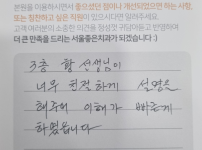 본원을 이용하시면서 좋으셨던 점이나 개선되었으면 하는 사항,
또는 칭찬하고 싶은 직원이 있으시다면 알려주세요.
고객 여러분의 소중한 의견을 정성껏 귀담아듣고 반영하여
더 큰 만족을 드리는 서울좋은치과가 되겠습니다 :)
3층 황 선생님이
너무 친절하게 설명을
해주어 이해가 빠르게
하였습니다